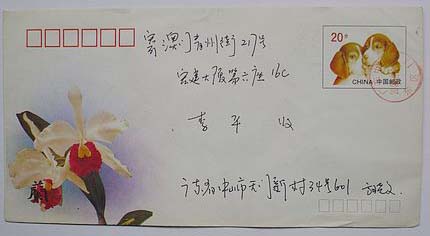 20分
CHINA 中国邮政
寄澳门青州街217号
宏建大厦第六座16C
李平 收
广东省中山市天门新村34号601
蘭